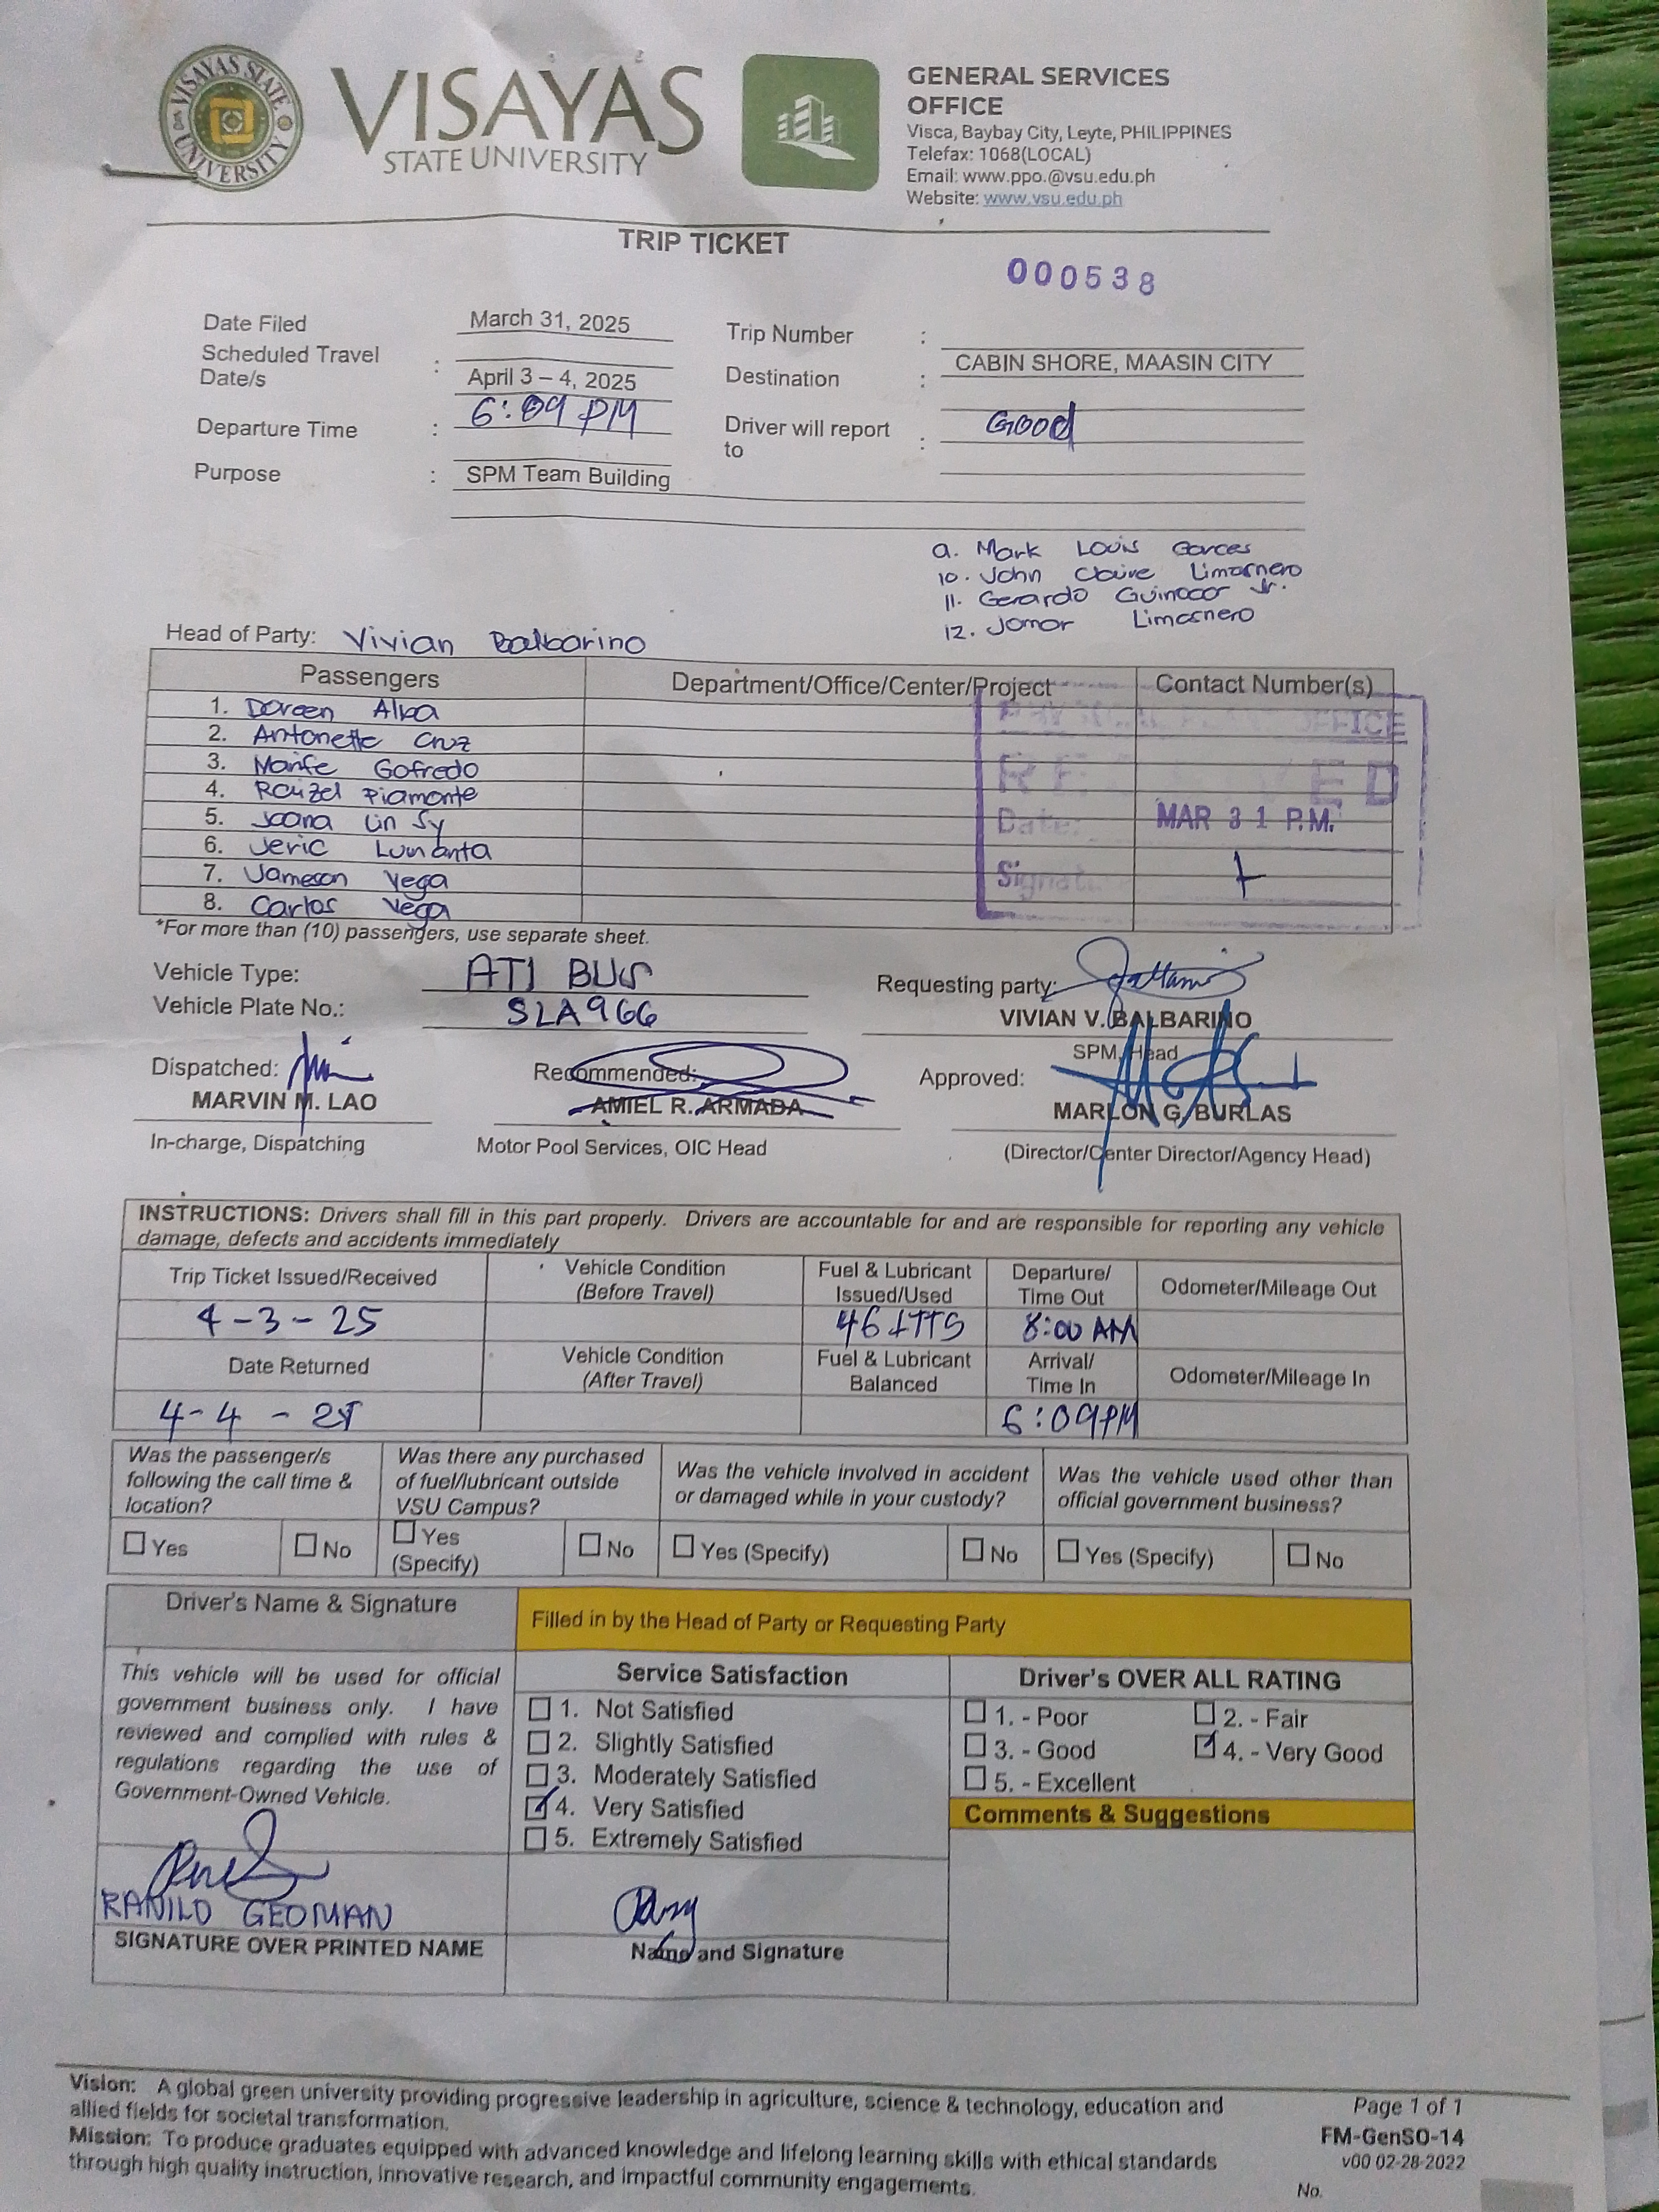 VISAYAS STATE UNIVERSITY
VISAYAS
STATE UNIVERSITY
GENERAL SERVICES
OFFICE
Visca, Baybay City, Leyte, PHILIPPINES
Telefax: 1068(LOCAL)
Email: www.ppo.@vsu.edu.ph
Website: www.vsu.edu.ph
TRIP TICKET
000538
Date Filed March 31, 2025 Trip Number :
Scheduled Travel Date/s : April 3 – 4, 2025 Destination : CABIN SHORE, MAASIN CITY
Departure Time : 6:09 PM Driver will report to : Good
Purpose : SPM Team Building
9. Mark Louis Garces
10. John Claire Limosnero
11. Gerardo Guinocor Jr.
12. Jomar Limosnero
Head of Party: Vivian Balbarino
Passengers Department/Office/Center/Project Contact Number(s)
1. Doreen Alba
2. Antonette Cruz
3. Marife Gofredo
4. Rouzel Piamonte
5. Joana Lin Sy
6. Jeric Lumanta
7. Jameson Vega
8. Carlos Vega
OFFICE
RECEIVED
Date: MAR 31 P.M.
Signat
*For more than (10) passengers, use separate sheet.
Vehicle Type: ATI BUS
Requesting party:
Vehicle Plate No.: SLA966
VIVIAN V. BALBARINO
SPM, Head
Dispatched: Recommended: Approved:
MARVIN M. LAO AMIEL R. ARMADA MARLON G. BURLAS
In-charge, Dispatching Motor Pool Services, OIC Head (Director/Center Director/Agency Head)
INSTRUCTIONS: Drivers shall fill in this part properly. Drivers are accountable for and are responsible for reporting any vehicle
damage, defects and accidents immediately
Trip Ticket Issued/Received Vehicle Condition (Before Travel) Fuel & Lubricant Issued/Used Departure/ Time Out Odometer/Mileage Out
4-3-25 46 LTTS 8:00 AM
Date Returned Vehicle Condition (After Travel) Fuel & Lubricant Balanced Arrival/ Time In Odometer/Mileage In
4-4-25 6:09PM
Was the passenger/s following the call time & location?
Was there any purchased of fuel/lubricant outside VSU Campus?
Was the vehicle involved in accident or damaged while in your custody?
Was the vehicle used other than official government business?
Yes No Yes (Specify) No Yes (Specify) No Yes (Specify) No
Driver's Name & Signature
Filled in by the Head of Party or Requesting Party
This vehicle will be used for official
government business only. I have
reviewed and complied with rules &
regulations regarding the use of
Government-Owned Vehicle.
RANILO GEOMAN
SIGNATURE OVER PRINTED NAME
Service Satisfaction
1. Not Satisfied
2. Slightly Satisfied
3. Moderately Satisfied
4. Very Satisfied
5. Extremely Satisfied
Name and Signature
Driver's OVER ALL RATING
1. - Poor 2. - Fair
3. - Good 4. - Very Good
5. - Excellent
Comments & Suggestions
Vision: A global green university providing progressive leadership in agriculture, science & technology, education and
allied fields for societal transformation.
Mission: To produce graduates equipped with advanced knowledge and lifelong learning skills with ethical standards
through high quality instruction, innovative research, and impactful community engagements.
Page 1 of 1
FM-GenSO-14
v00 02-28-2022
No.